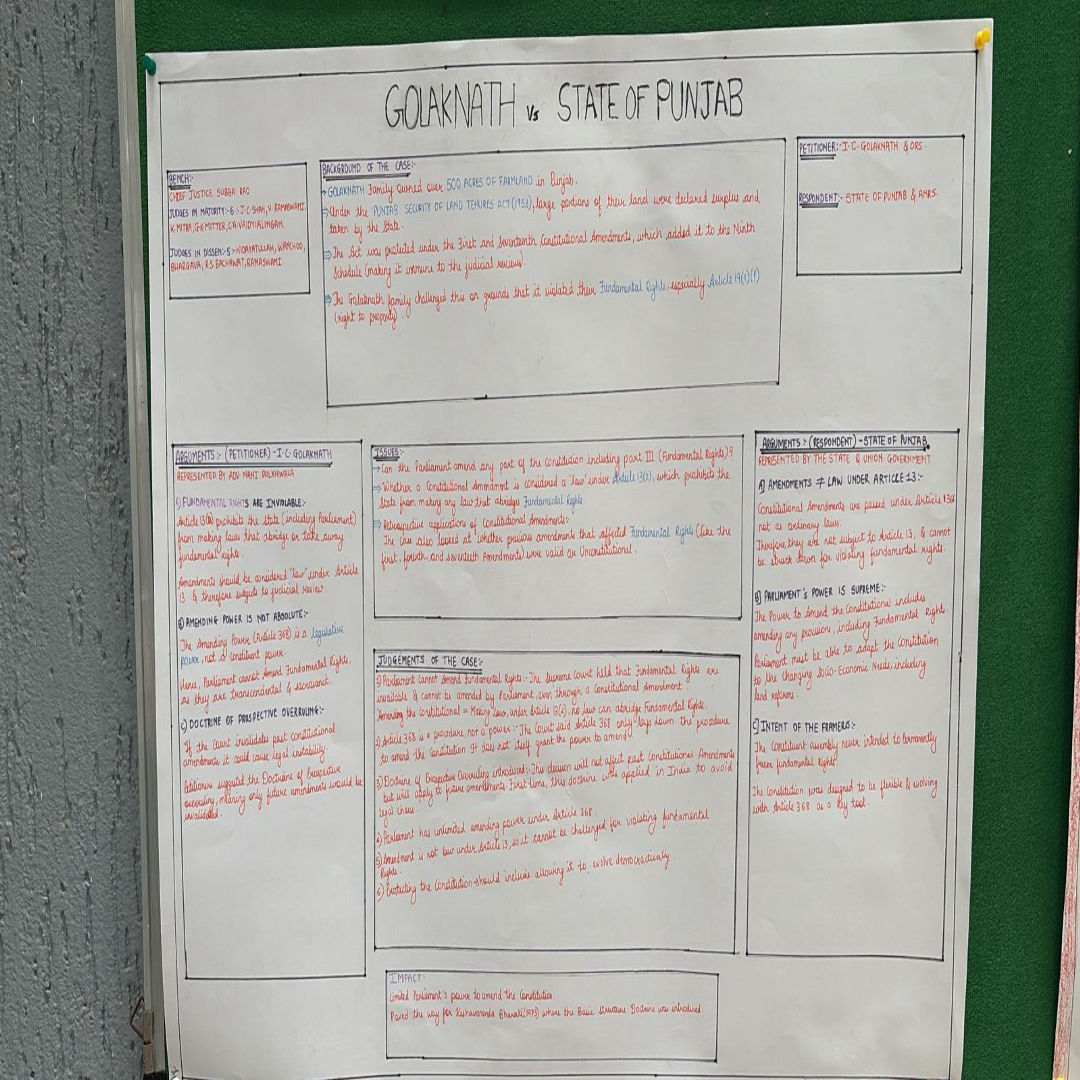 GOLAKNATH vs STATE OF PUNJAB
BENCH:-
CHIEF JUSTICE SUBBA RAO
JUDGES IN MAJORITY:- 6 → J.C. SHAH, V. RAMASWAMI,
K. MITRA, G.K MITTER, C.A. VAIDYIALINGAM.
JUDGES IN DISSEN:- 5 → HIDAYATULLAH, WANCHOO,
BHARGAVA, R.S. BACHAWAT, RAMASWAMI
BACKGROUND OF THE CASE:-
→ GOLAKNATH family owned over 500 ACRES OF FARMLAND in Punjab.
⇒ Under the PUNJAB SECURITY OF LAND TENURES ACT (1953), large portions of their land were declared surplus and
taken by the State.
⇒ The Act was protected under the First and Seventeenth Constitutional Amendments, which added it to the Ninth
Schedule (making it immune to the judicial review).
⇒ The Golaknath family challenged this on grounds that it violated their Fundamental Rights, especially Article 19(1)(f)
(right to property)
PETITIONER:- I.C. GOLAKNATH & ORS.
RESPONDENT:- STATE OF PUNJAB & ANRS.
ARGUMENTS :- (PETITIONER) - I.C. GOLAKNATH
REPRESENTED BY ADV NANI PALKHIWALA
FUNDAMENTAL RIGHTS ARE INVIOLABLE:-
Article 13(2) prohibits the state (including Parliament)
from making laws that abridge or take away
fundamental rights.
Amendments should be considered "law" under Article
13 & therefore subject to judicial review
B) AMENDING POWER IS NOT ABSOLUTE:-
The Amending Power (Article 368) is a legislative
power, not a constituent power.
Hence, Parliament cannot Amend Fundamental Rights,
as they are transcendental & sacrosanct.
C) DOCTRINE OF PROSPECTIVE OVERRULING:-
If the court invalidates past constitutional
amendments it could cause legal instability.
Petitioners suggested the Doctrine of Prospective
overruling, meaning only future amendments would be
invalidated.
ISSUES:-
→ Can the Parliament amend any part of the Constitution including part III (Fundamental Rights)?
⇒ Whether a Constitutional Amendment is considered a 'law' under Article 13(2), which prohibits the
State from making any law that abridges Fundamental Rights.
⇒ Retrospective application of Constitutional Amendments:-
The case also looked at whether previous amendments that affected Fundamental Rights (like the
first, fourth, and seventeeth Amendments) were valid or Unconstitutional.
JUDGEMENTS OF THE CASE:-
1) Parliament cannot Amend Fundamental Rights:- The Supreme Court held that Fundamental Rights are
inviolable & cannot be amended by Parliament, even through a Constitutional Amendment.
Amending the Constitutional = Making Law, under Article 13(2), no law can abridge Fundamental Rights.
2) Article 368 is a procedure, not a power:- The Court said Article 368 only lays down the procedure
to amend the Constitution. It does not itself grant the power to amend.
3) Doctrine of Prospective Overruling introduced:- This decision will not affect past Constitutional Amendments
but will apply to future amendments. First time, this doctrine was applied in India to avoid
legal chaos.
4) Parliament has unlimited amending power under Article 368.
5) Amendment is not law under Article 13, so it cannot be challenged for violating fundamental
Rights.
6) Protecting the Constitution should include allowing it to evolve democractically.
ARGUMENTS :- (RESPONDENT) - STATE OF PUNJAB.
REPRESENTED BY THE STATE & UNION GOVERNMENT
A] AMENDMENTS ≠ LAW UNDER ARTICLE 13:-
Constitutional Amendments are passed under Article 368
not as ordinary laws.
Therefore, they are not subject to Article 13, & cannot
be struck down for violating fundamental rights.
B] PARLIAMENT'S POWER IS SUPREME:-
The Power to Amend the Constitutional includes
amending any provision, including Fundamental Rights.
Parliament must be able to adapt the Constitution
to the changing Socio-Economic Needs, including
land reforms.
C] INTENT OF THE FRAMERS:-
The Constituent assembly never intended to permanently
freeze fundamental rights
The Constitution was designed to be flexible & evolving
with Article 368 as a key tool.
IMPACT:-
Limited Parliament's power to amend the Constitution.
Paved the way for Kesavananda Bharati (1973) where the Basic Structure Doctrine was introduced.